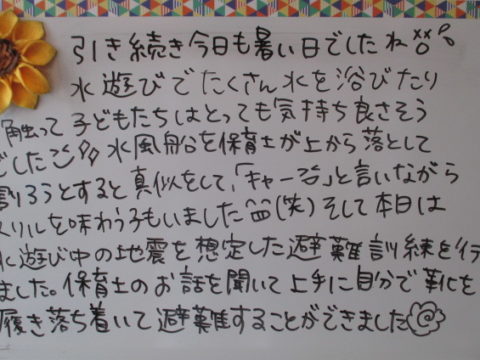 引き続き今日も暑い日でしたね
水遊びでたくさん水を浴びたり
触って子どもたちはとっても気持ち良さそう
でした 水風船を保育士が上から落として
割ろうとすると真似をして、「キャー」と言いながら
スリルを味わう子もいました(笑)そして本日は
水遊び中の地震を想定した避難訓練を行
ました。保育士のお話を聞いて上手に自分で靴を
履き落ち着いて避難することができました